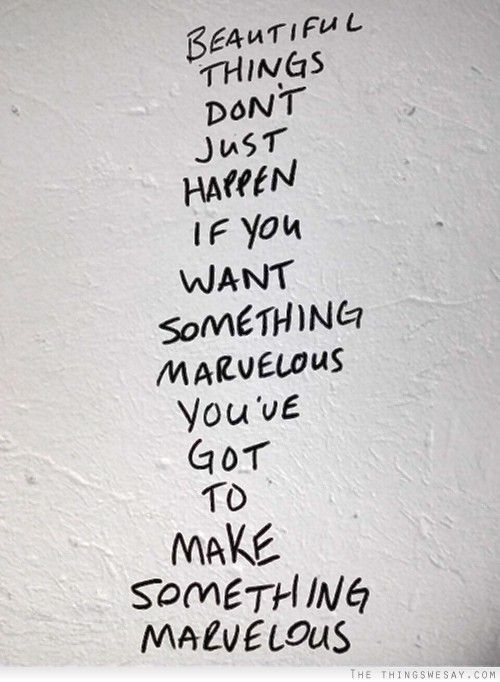 BEAUTIFUL
THINGS
DON'T
JUST
HAPPEN
IF YOU
WANT
SOMETHING
MARVELOUS
YOU'VE
GOT
TO
MAKE
SOMETHING
MARVELOUS
THE THINGSWESAY.COM